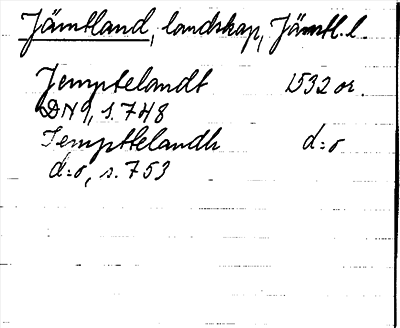 Jämtland, landskap, Jämtl. l.
Jemptelandt 1532 or.
DN 9, s. 748
Jempttelandh d:o
d:o, s. 753